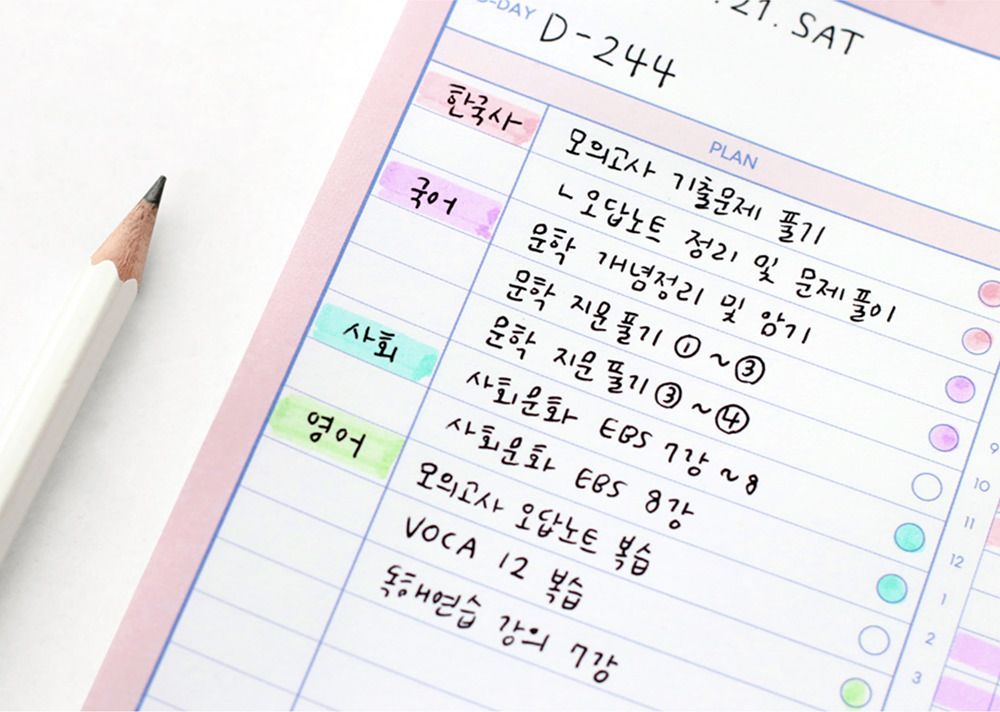 21. SAT
D-DAY
D-244
PLAN
한국사 모의고사 기출문제 풀기
ㄴ오답노트 정리 및 문제풀이
국어 문학 개념정리 및 암기
문학 지문풀기 ①~③
문학 지문풀기 ③~④
사회 사회문화 EBS 7강~8
사회문화 EBS 8강
영어 모의고사 오답노트 복습
VOCA 12 복습
독해연습 강의 7강
9
10
11
12
1
2
3